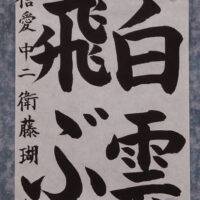 白雲
飛ぶ
信愛中二 衛藤瑚